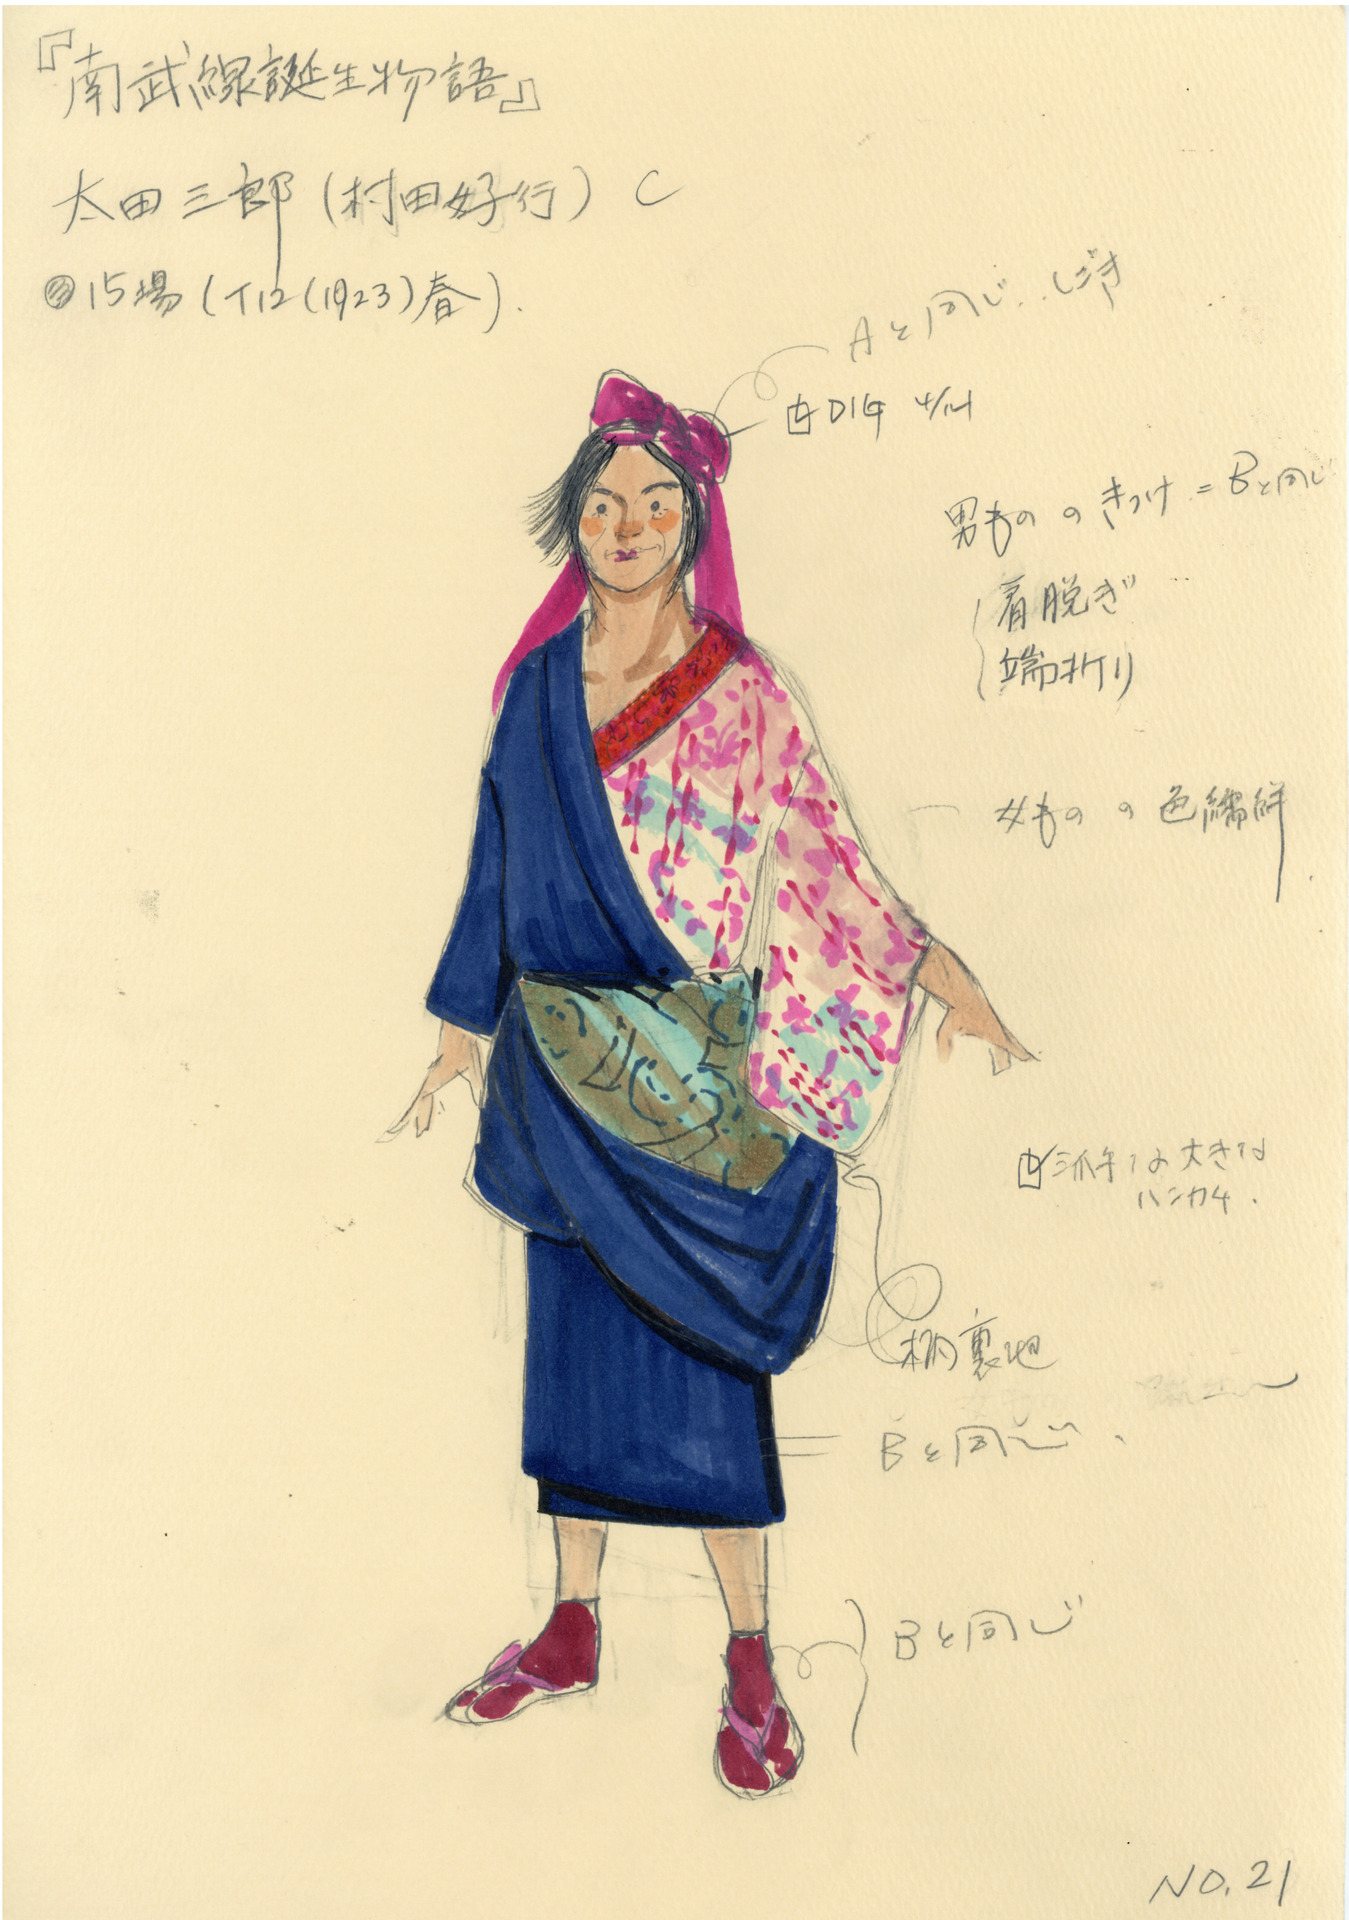 『南武線誕生物語』
太田三郎(村田好行) C
15場(T12(1923)春).
Aと同じ...しごき
男もののきつけ=Bと同じ
肩脱ぎ
端折り
女ものの色襦袢
派手な大きな
ハンカチ.
柄裏地
Bと同じ.
Bと同じ
NO.21